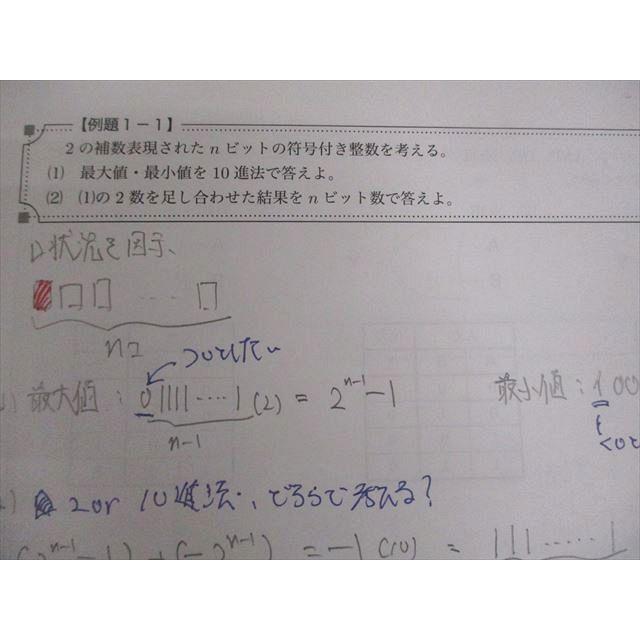 【例題1－1】
2の補数表現されたnビットの符号付き整数を考える。
(1) 最大値・最小値を10進法で答えよ。
(2) (1)の2数を足し合わせた結果をnビット数で答えよ。
状況を図示、
... 
nコ
>0としたい
最大値：01111....1(2) = 2^{n-1}-1 最小値：100
n-1
<0と
2 or 10進法、どちらで考える？
(2^{n-1}-1)+(-2^{n-1}) = -1(10) = 111.....1